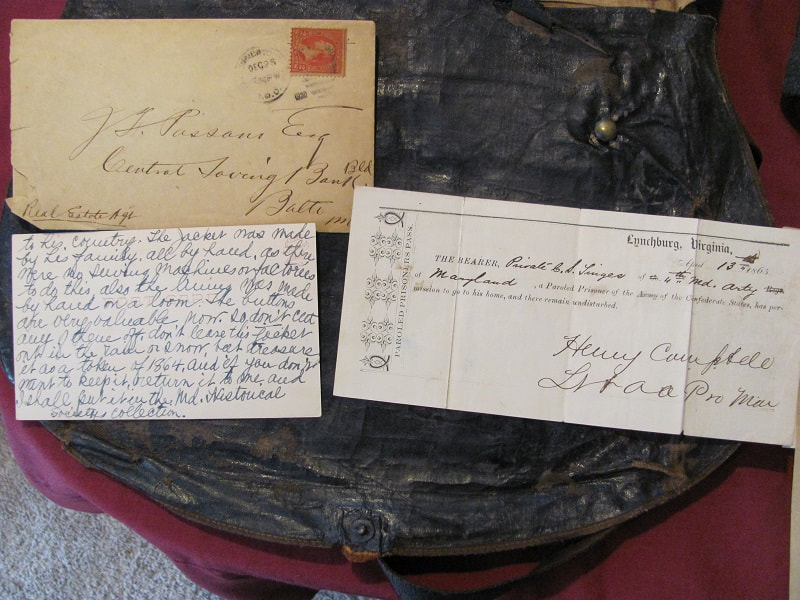 DEC 25
J. F. Passano Esq
Central Saving Bank Bld
Balto
Real Estate Agt
to his country. The jacket was made
by his family, all by hand, as there
were no sewing machines or factories
to do this, also the lining was made
by hand on a loom. The buttons
are very valuable now. So don't cut
any of them off, don't leave this jacket
out in the rain or snow, but treasure
it as a token of 1864, and if you don't
want to keep it, return it to me, and
I shall put it in the Md. Historical
Society's collection.
PAROLED PRISONER'S PASS.
Lynchburg, Virginia,
April 13th 1865
THE BEARER, Private C. A. of 4th Md. Arty
of Maryland, a Paroled Prisoner of the Army of the Confederate States, has per-
mission to go to his home, and there remain undisturbed.
Henry Campbell
Lt & a a Pro Mar